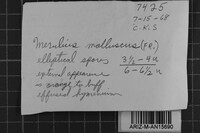 7425
7-15-68
C.K.S
Merulius molluscus (Fr.)
elliptical spores 3½-4µ
6-6½µ
optical appearance
= orange to buff
effused hymenium
ARIZ-M-AN15690